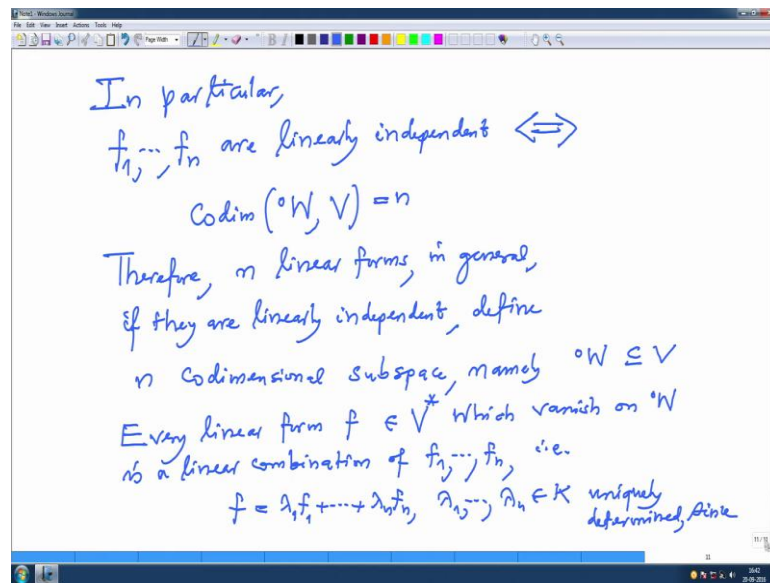 Note1 - Windows Journal
File Edit View Insert Actions Tools Help
Page Width
In particular,
f₁,⋯,fₙ are linearly independent ⟺
Codim (°W, V) = n
Therefore, n linear forms, in general,
if they are linearly independent, define
n codimensional subspace, namely °W ⊆ V
Every linear form f ∈ V* which vanish on °W
is a linear combination of f₁,⋯,fₙ, i.e.
f = λ₁f₁+⋯+λₙfₙ, λ₁,⋯,λₙ ∈ K uniquely
determined, since
11
16:42